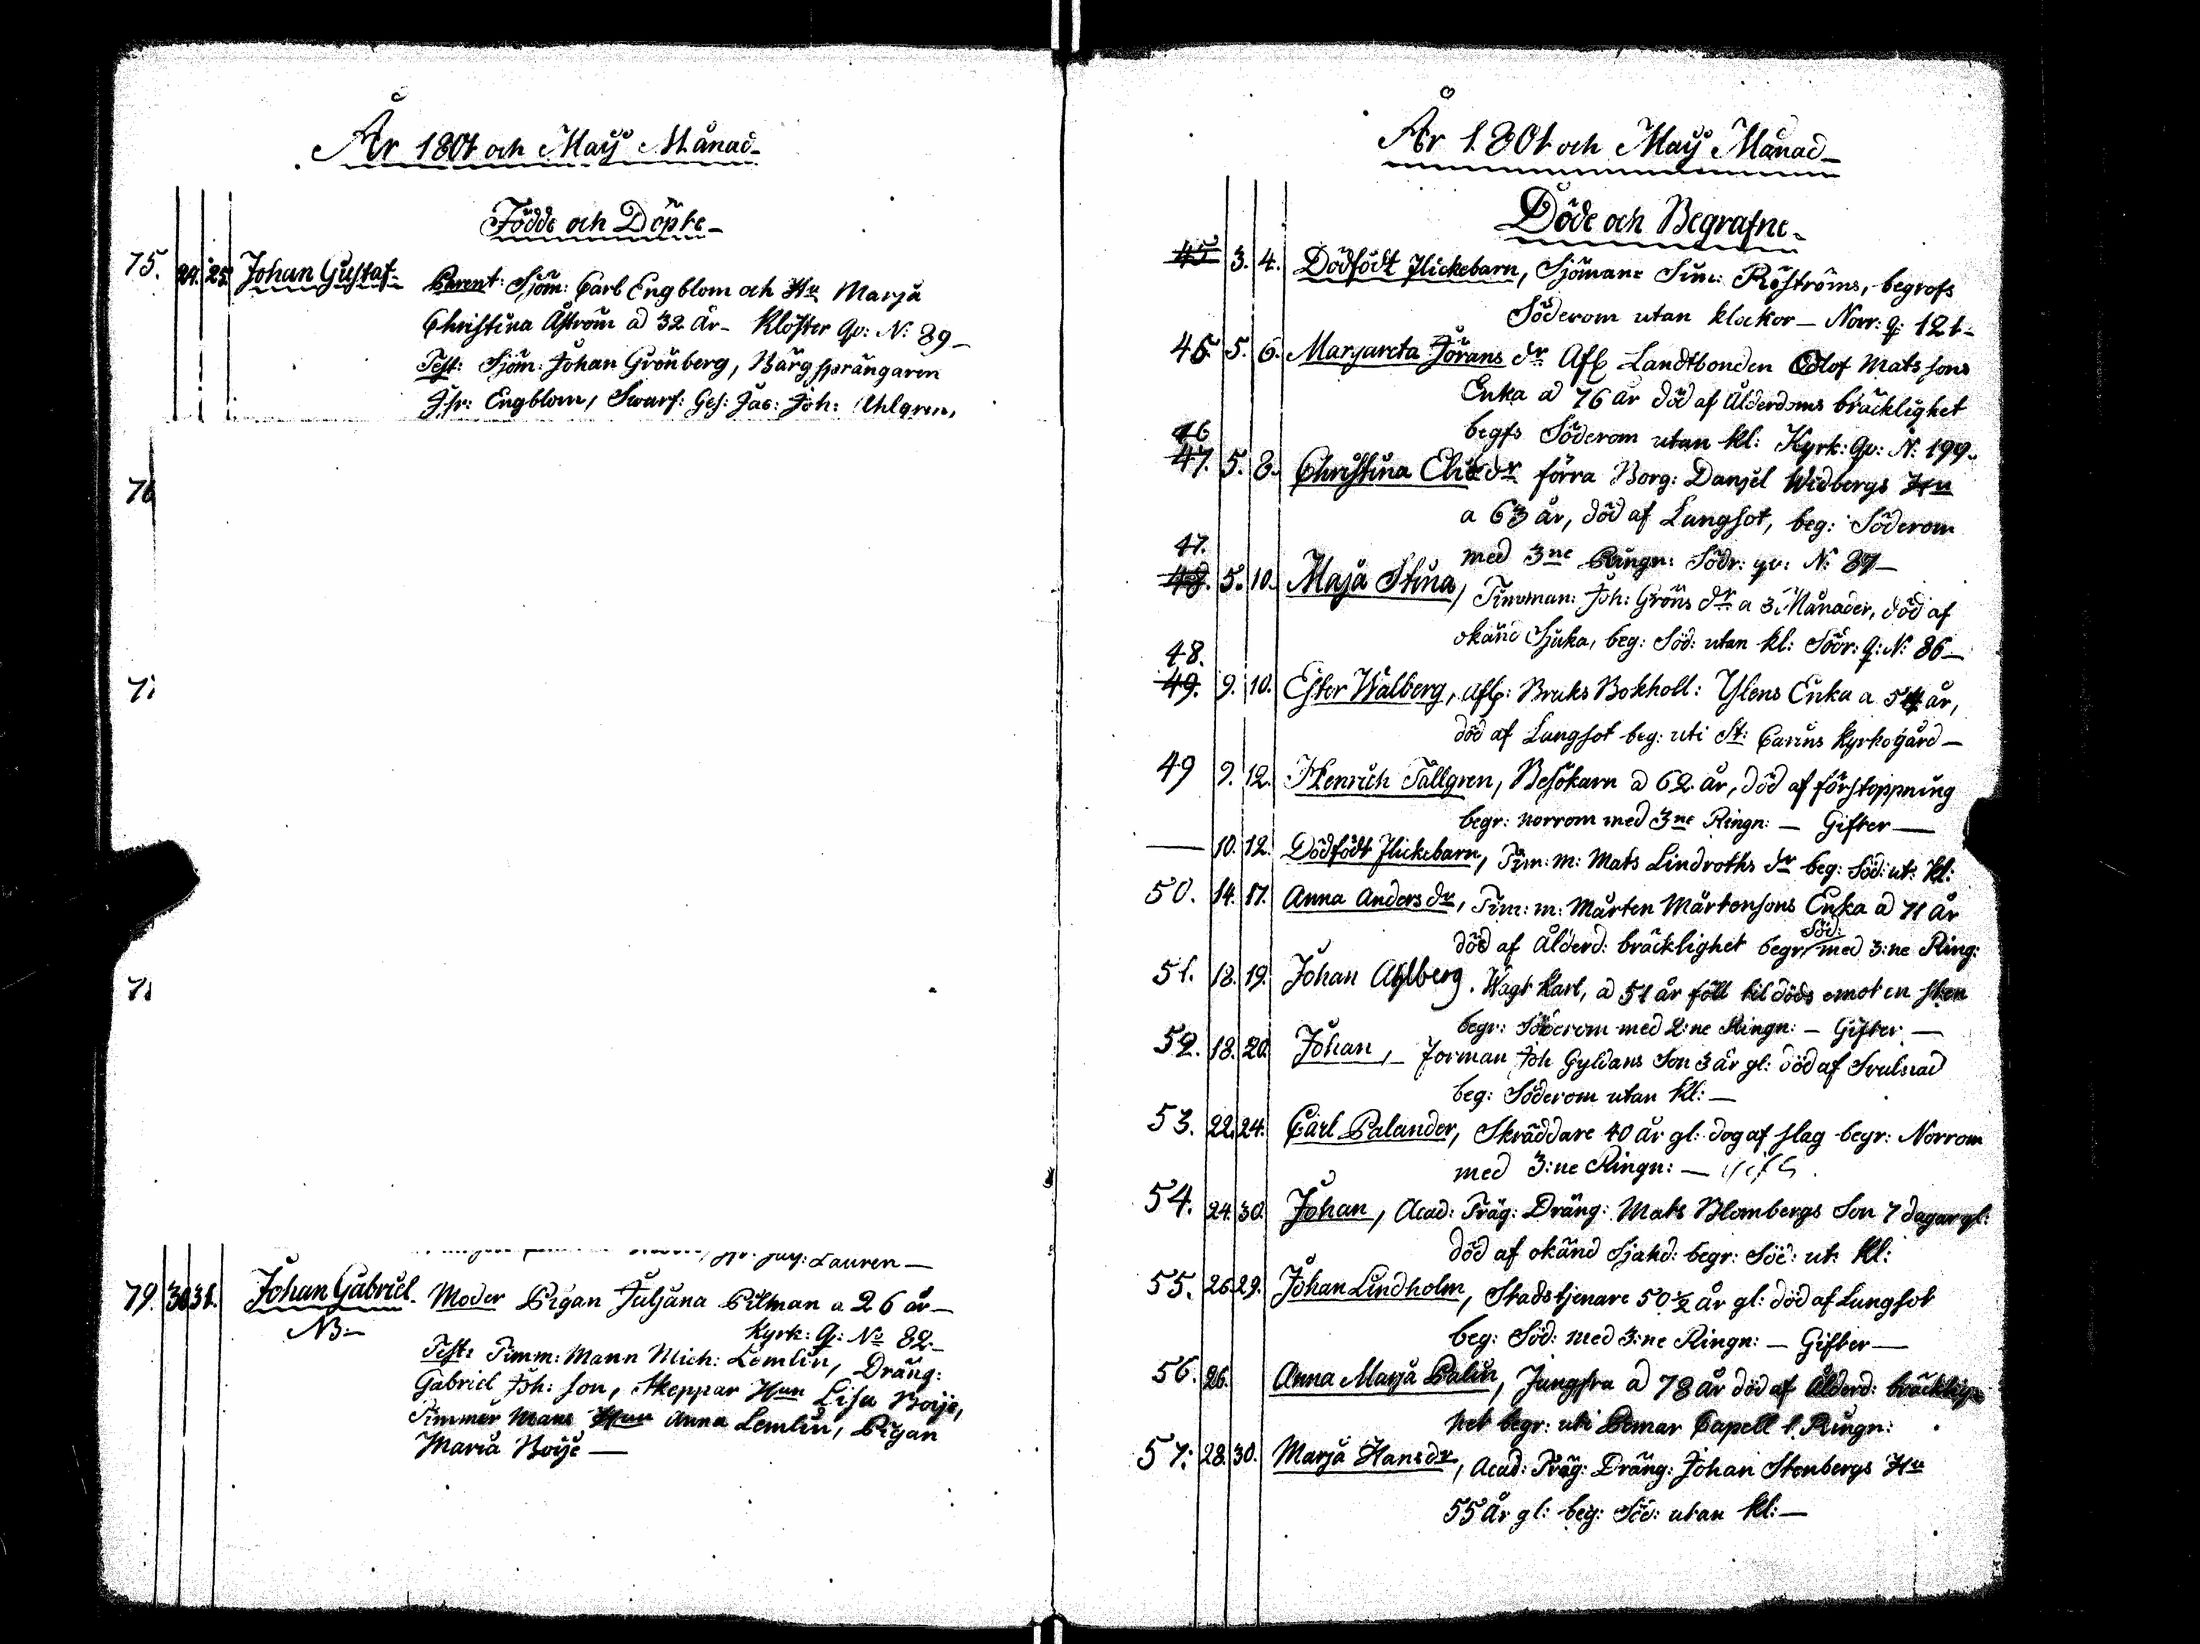 År 1801 och Maÿ Månad
Födde och Döpte
75. 24. 25. Johan Gustaf. Parent: Sjöm: Carl Engblom och Hu Marja
Christina Åström a 32 år Kloster Qv: N: 89
Test: Sjöm: Johan Grönberg, Bärgsprängaren
Engblom, Swarf: Ges: Jac: Joh: Uhlgren,
76
77
Lauren
79. 30 31. Johan Gabriel Moder Pigan Juljana Pihlman a 26 år
NB: Kyrk: Q: No 82
Test: Timm: Mann Mich: Lemlin, Dräng:
Gabriel Joh: son, Skeppar Hun Lisa Boije,
Timmer Mans Hun Anna Lemlin, Pigan
Maria Boije
År 1801 och Maÿ Månad
Döde och Begrafne
45 3. 4. Dödfödt flickebarn, Sjömans Sim: Röströms, begrofs
Söderom utan klockor Norr: q: 121
45 5. 6. Margareta Jörans dr Afl Landtbonden Olof Mats sons
Enka a 76 år död af Ålderdoms bräcklighet
begfs Söderom utan kl: Kyrk: Qv: N: 199
46
47. 5. 8. Christina Elis dr förra Borg: Danjel Widbergs Hu
a 63 år, död af Lungsot, beg: Söderom
med 3ne Ringn: Södr: qv: N: 87
47.
48. 5. 10. Maja Stina, Timmman: Joh: Gröns dr a 3 Månader, död af
okänd Sjuka, beg: Söd: utan kl: Södr: q: N: 86
48.
49. 9. 10. Ester Walberg, Afl: Bruks Bokholl: Ylens Enka a 54 år,
död af Lungsot beg: uti St: Carins kyrkogård
49 9. 12. Henrich Tallgren, Besökarn a 62 år, död af förstoppning
begr: norrom med 3ne Ringn: Gifter
10. 12. Dödfödt flickebarn, Tim: m: Mats Lindroths dr beg: Söd: ut: kl:
50. 14. 17. Anna Anders dr, Tim: m: Mårten Mårtensons Enka a 71 år
död af Ålderd: bräcklighet begr Söd: med 3:ne Ring:
51. 18. 19. Johan Ahlberg. Wagt karl, a 51 år föll til döds emot en sten
begr: Söderom med 2:ne Ringn: Gifter
52. 18. 20. Johan, Forman Joh Gyldans Son 3 år gl: död af Svulnad
beg: Söderom utan kl:
53. 22. 24. Carl Palander, Skräddare 40 år gl: dog af slag begr: Norrom
med 3:ne Ringn:
54. 24. 30. Johan, Acad: Träg: Dräng: Mats Blombergs Son 7 dagar gl:
död af okänd Sjukd: begr: Söd: ut: kl:
55. 26. 29. Johan Lindholm, Stadstjenare 50 1/2 år gl: död af Lungsot
beg: Söd: med 3:ne Ringn: Gifter
56. 26. Anna Marja Palin, Jungfru a 78 år död af Ålderd: bräcklig
het begr: uti Pemar Capell 1. Ringn:
57. 28. 30. Marja Hansdr, Acad: Träg: Dräng: Johan Stenbergs Hu
55 år gl: beg: Söd: utan kl: